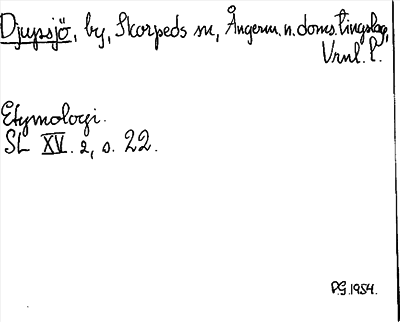 Djupsjö, by, Skorpeds sn, Ångerm. n. doms. tingslag,
Vrnl. l.
Etymologi.
SL XV. 2, s. 22.
P.G. 1954.